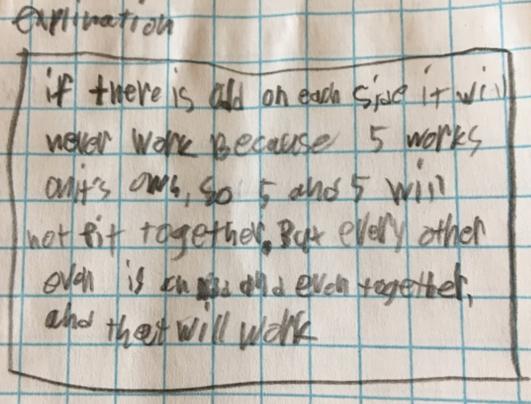 explination
if there is odd on each side it will
never work Because 5 works
on it's own, so 5 and 5 will
not fit together. But every other
even is an and even together,
and that will work